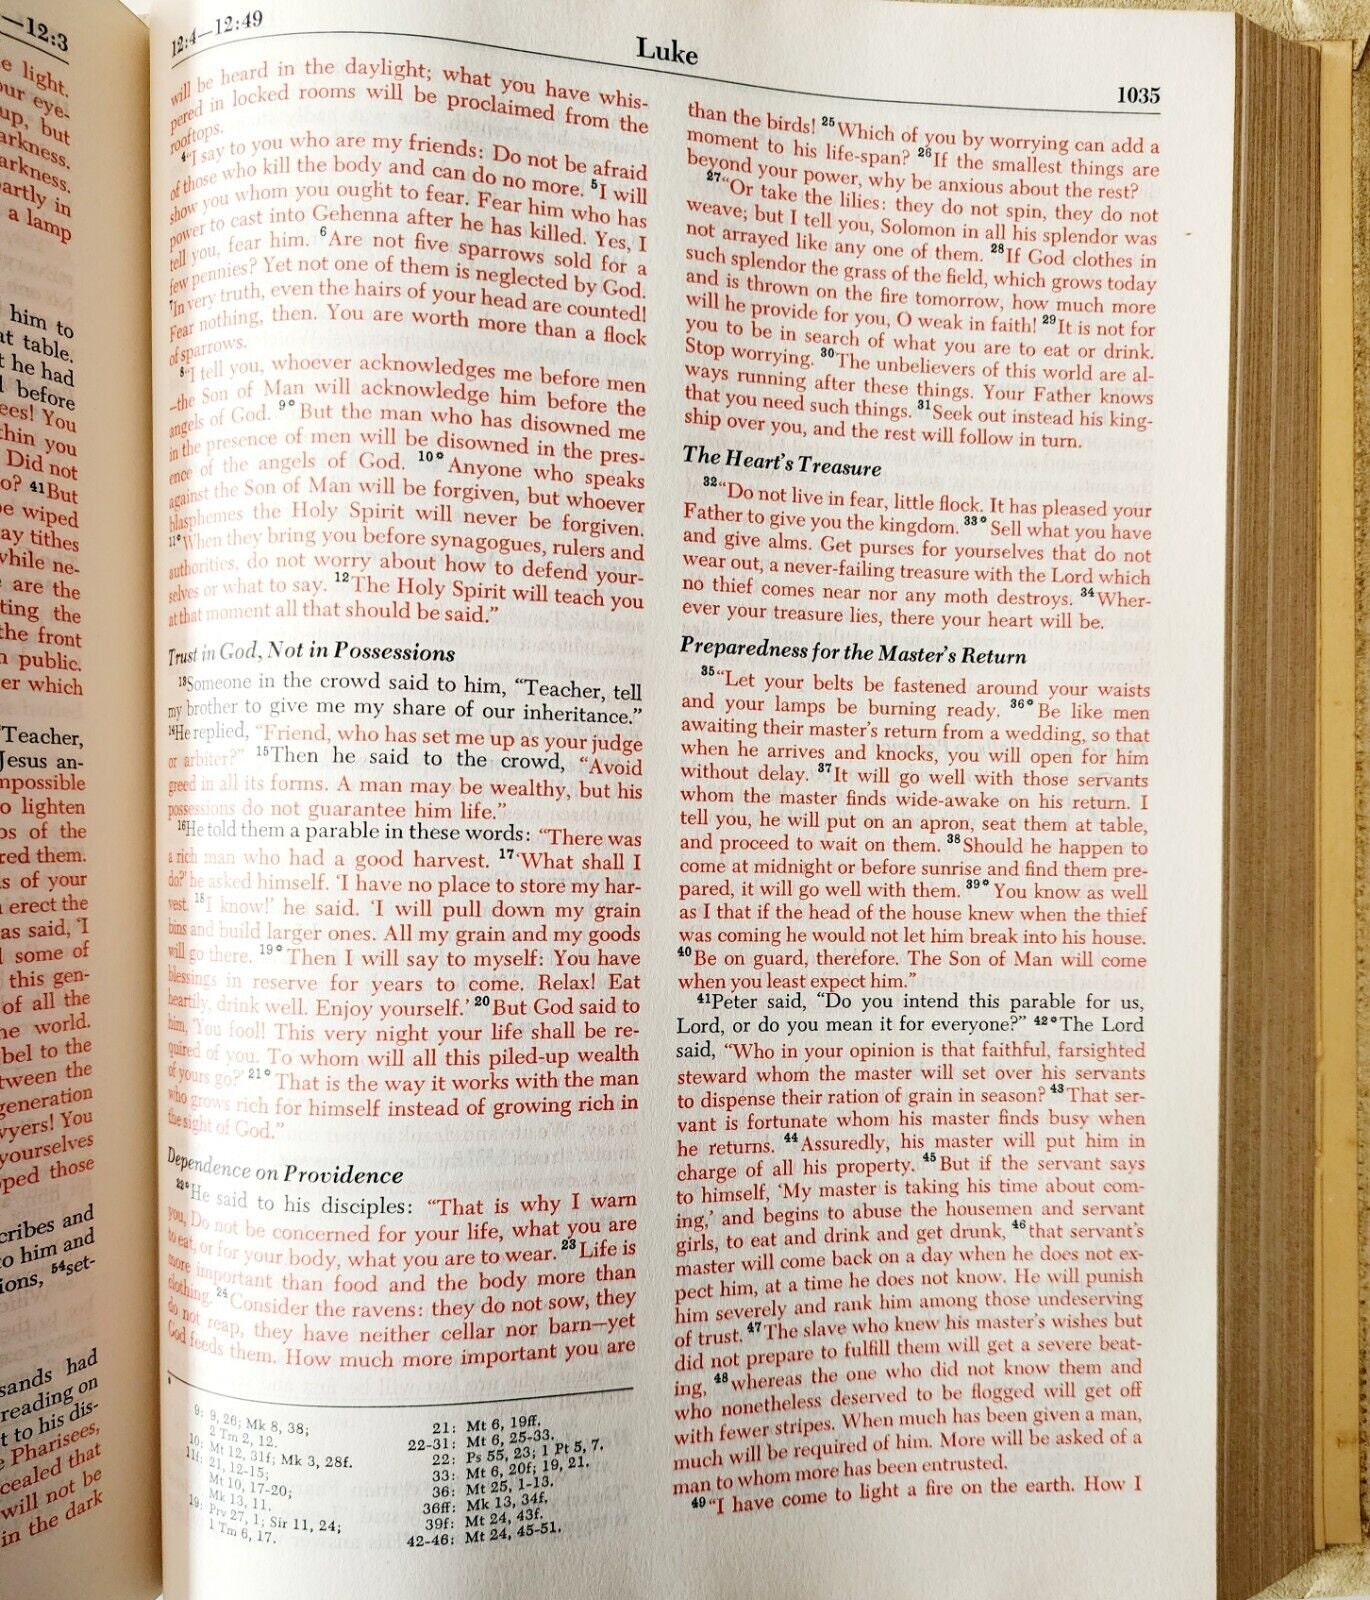 —12:3
e light.
our eye-
up, but
arkness.
arkness.
partly in
a lamp
him to
at table.
t he had
l before
ees! You
thin you
Did not
o? 41But
be wiped
ay tithes
while ne-
e are the
ting the
the front
n public.
er which
"Teacher,
Jesus an-
mpossible
o lighten
ps of the
red them.
s of your
u erect the
as said, 'I
l some of
this gen-
of all the
he world.
bel to the
tween the
generation
wyers! You
yourselves
pped those
cribes and
to him and
ions, 54set-
sands had
reading on
t to his dis-
e Pharisees,
cealed that
will not be
in the dark
12:4—12:49
Luke
1035
will be heard in the daylight; what you have whis-
pered in locked rooms will be proclaimed from the
rooftops.
4"I say to you who are my friends: Do not be afraid
of those who kill the body and can do no more. 5I will
show you whom you ought to fear. Fear him who has
power to cast into Gehenna after he has killed. Yes, I
tell you, fear him. 6Are not five sparrows sold for a
few pennies? Yet not one of them is neglected by God.
7In very truth, even the hairs of your head are counted!
Fear nothing, then. You are worth more than a flock
of sparrows.
8"I tell you, whoever acknowledges me before men
–the Son of Man will acknowledge him before the
angels of God. 9° But the man who has disowned me
in the presence of men will be disowned in the pres-
ence of the angels of God. 10° Anyone who speaks
against the Son of Man will be forgiven, but whoever
blasphemes the Holy Spirit will never be forgiven.
11°When they bring you before synagogues, rulers and
authorities, do not worry about how to defend your-
selves or what to say. 12The Holy Spirit will teach you
at that moment all that should be said."
Trust in God, Not in Possessions
13Someone in the crowd said to him, "Teacher, tell
my brother to give me my share of our inheritance."
14He replied, "Friend, who has set me up as your judge
or arbiter?" 15Then he said to the crowd, "Avoid
greed in all its forms. A man may be wealthy, but his
possessions do not guarantee him life."
16He told them a parable in these words: "There was
a rich man who had a good harvest. 17'What shall I
do?' he asked himself. 'I have no place to store my har-
vest. 18I know!' he said. 'I will pull down my grain
bins and build larger ones. All my grain and my goods
will go there. 19° Then I will say to myself: You have
blessings in reserve for years to come. Relax! Eat
heartily, drink well. Enjoy yourself.' 20But God said to
him, 'You fool! This very night your life shall be re-
quired of you. To whom will all this piled-up wealth
of yours go?' 21° That is the way it works with the man
who grows rich for himself instead of growing rich in
the sight of God."
Dependence on Providence
22°He said to his disciples: "That is why I warn
you, Do not be concerned for your life, what you are
to eat, or for your body, what you are to wear. 23Life is
more important than food and the body more than
clothing. 24Consider the ravens: they do not sow, they
do not reap, they have neither cellar nor barn—yet
God feeds them. How much more important you are
9: 9, 26; Mk 8, 38;
2 Tm 2, 12.
10: Mt 12, 31f; Mk 3, 28f.
11f: 21, 12-15;
Mt 10, 17-20;
Mk 13, 11.
19: Prv 27, 1; Sir 11, 24;
1 Tm 6, 17.
21: Mt 6, 19ff.
22-31: Mt 6, 25-33.
22: Ps 55, 23; 1 Pt 5, 7.
33: Mt 6, 20f; 19, 21.
36: Mt 25, 1-13.
36ff: Mk 13, 34f.
39f: Mt 24, 43f.
42-46: Mt 24, 45-51.
than the birds! 25Which of you by worrying can add a
moment to his life-span? 26If the smallest things are
beyond your power, why be anxious about the rest?
27"Or take the lilies: they do not spin, they do not
weave; but I tell you, Solomon in all his splendor was
not arrayed like any one of them. 28If God clothes in
such splendor the grass of the field, which grows today
and is thrown on the fire tomorrow, how much more
will he provide for you, O weak in faith! 29It is not for
you to be in search of what you are to eat or drink.
Stop worrying. 30The unbelievers of this world are al-
ways running after these things. Your Father knows
that you need such things. 31Seek out instead his king-
ship over you, and the rest will follow in turn.
The Heart's Treasure
32"Do not live in fear, little flock. It has pleased your
Father to give you the kingdom. 33° Sell what you have
and give alms. Get purses for yourselves that do not
wear out, a never-failing treasure with the Lord which
no thief comes near nor any moth destroys. 34Wher-
ever your treasure lies, there your heart will be.
Preparedness for the Master's Return
35"Let your belts be fastened around your waists
and your lamps be burning ready. 36° Be like men
awaiting their master's return from a wedding, so that
when he arrives and knocks, you will open for him
without delay. 37It will go well with those servants
whom the master finds wide-awake on his return. I
tell you, he will put on an apron, seat them at table,
and proceed to wait on them. 38Should he happen to
come at midnight or before sunrise and find them pre-
pared, it will go well with them. 39° You know as well
as I that if the head of the house knew when the thief
was coming he would not let him break into his house.
40Be on guard, therefore. The Son of Man will come
when you least expect him."
41Peter said, "Do you intend this parable for us,
Lord, or do you mean it for everyone?" 42°The Lord
said, "Who in your opinion is that faithful, farsighted
steward whom the master will set over his servants
to dispense their ration of grain in season? 43That ser-
vant is fortunate whom his master finds busy when
he returns. 44Assuredly, his master will put him in
charge of all his property. 45But if the servant says
to himself, 'My master is taking his time about com-
ing,' and begins to abuse the housemen and servant
girls, to eat and drink and get drunk, 46that servant's
master will come back on a day when he does not ex-
pect him, at a time he does not know. He will punish
him severely and rank him among those undeserving
of trust. 47The slave who knew his master's wishes but
did not prepare to fulfill them will get a severe beat-
ing, 48whereas the one who did not know them and
who nonetheless deserved to be flogged will get off
with fewer stripes. When much has been given a man,
much will be required of him. More will be asked of a
man to whom more has been entrusted.
49"I have come to light a fire on the earth. How I